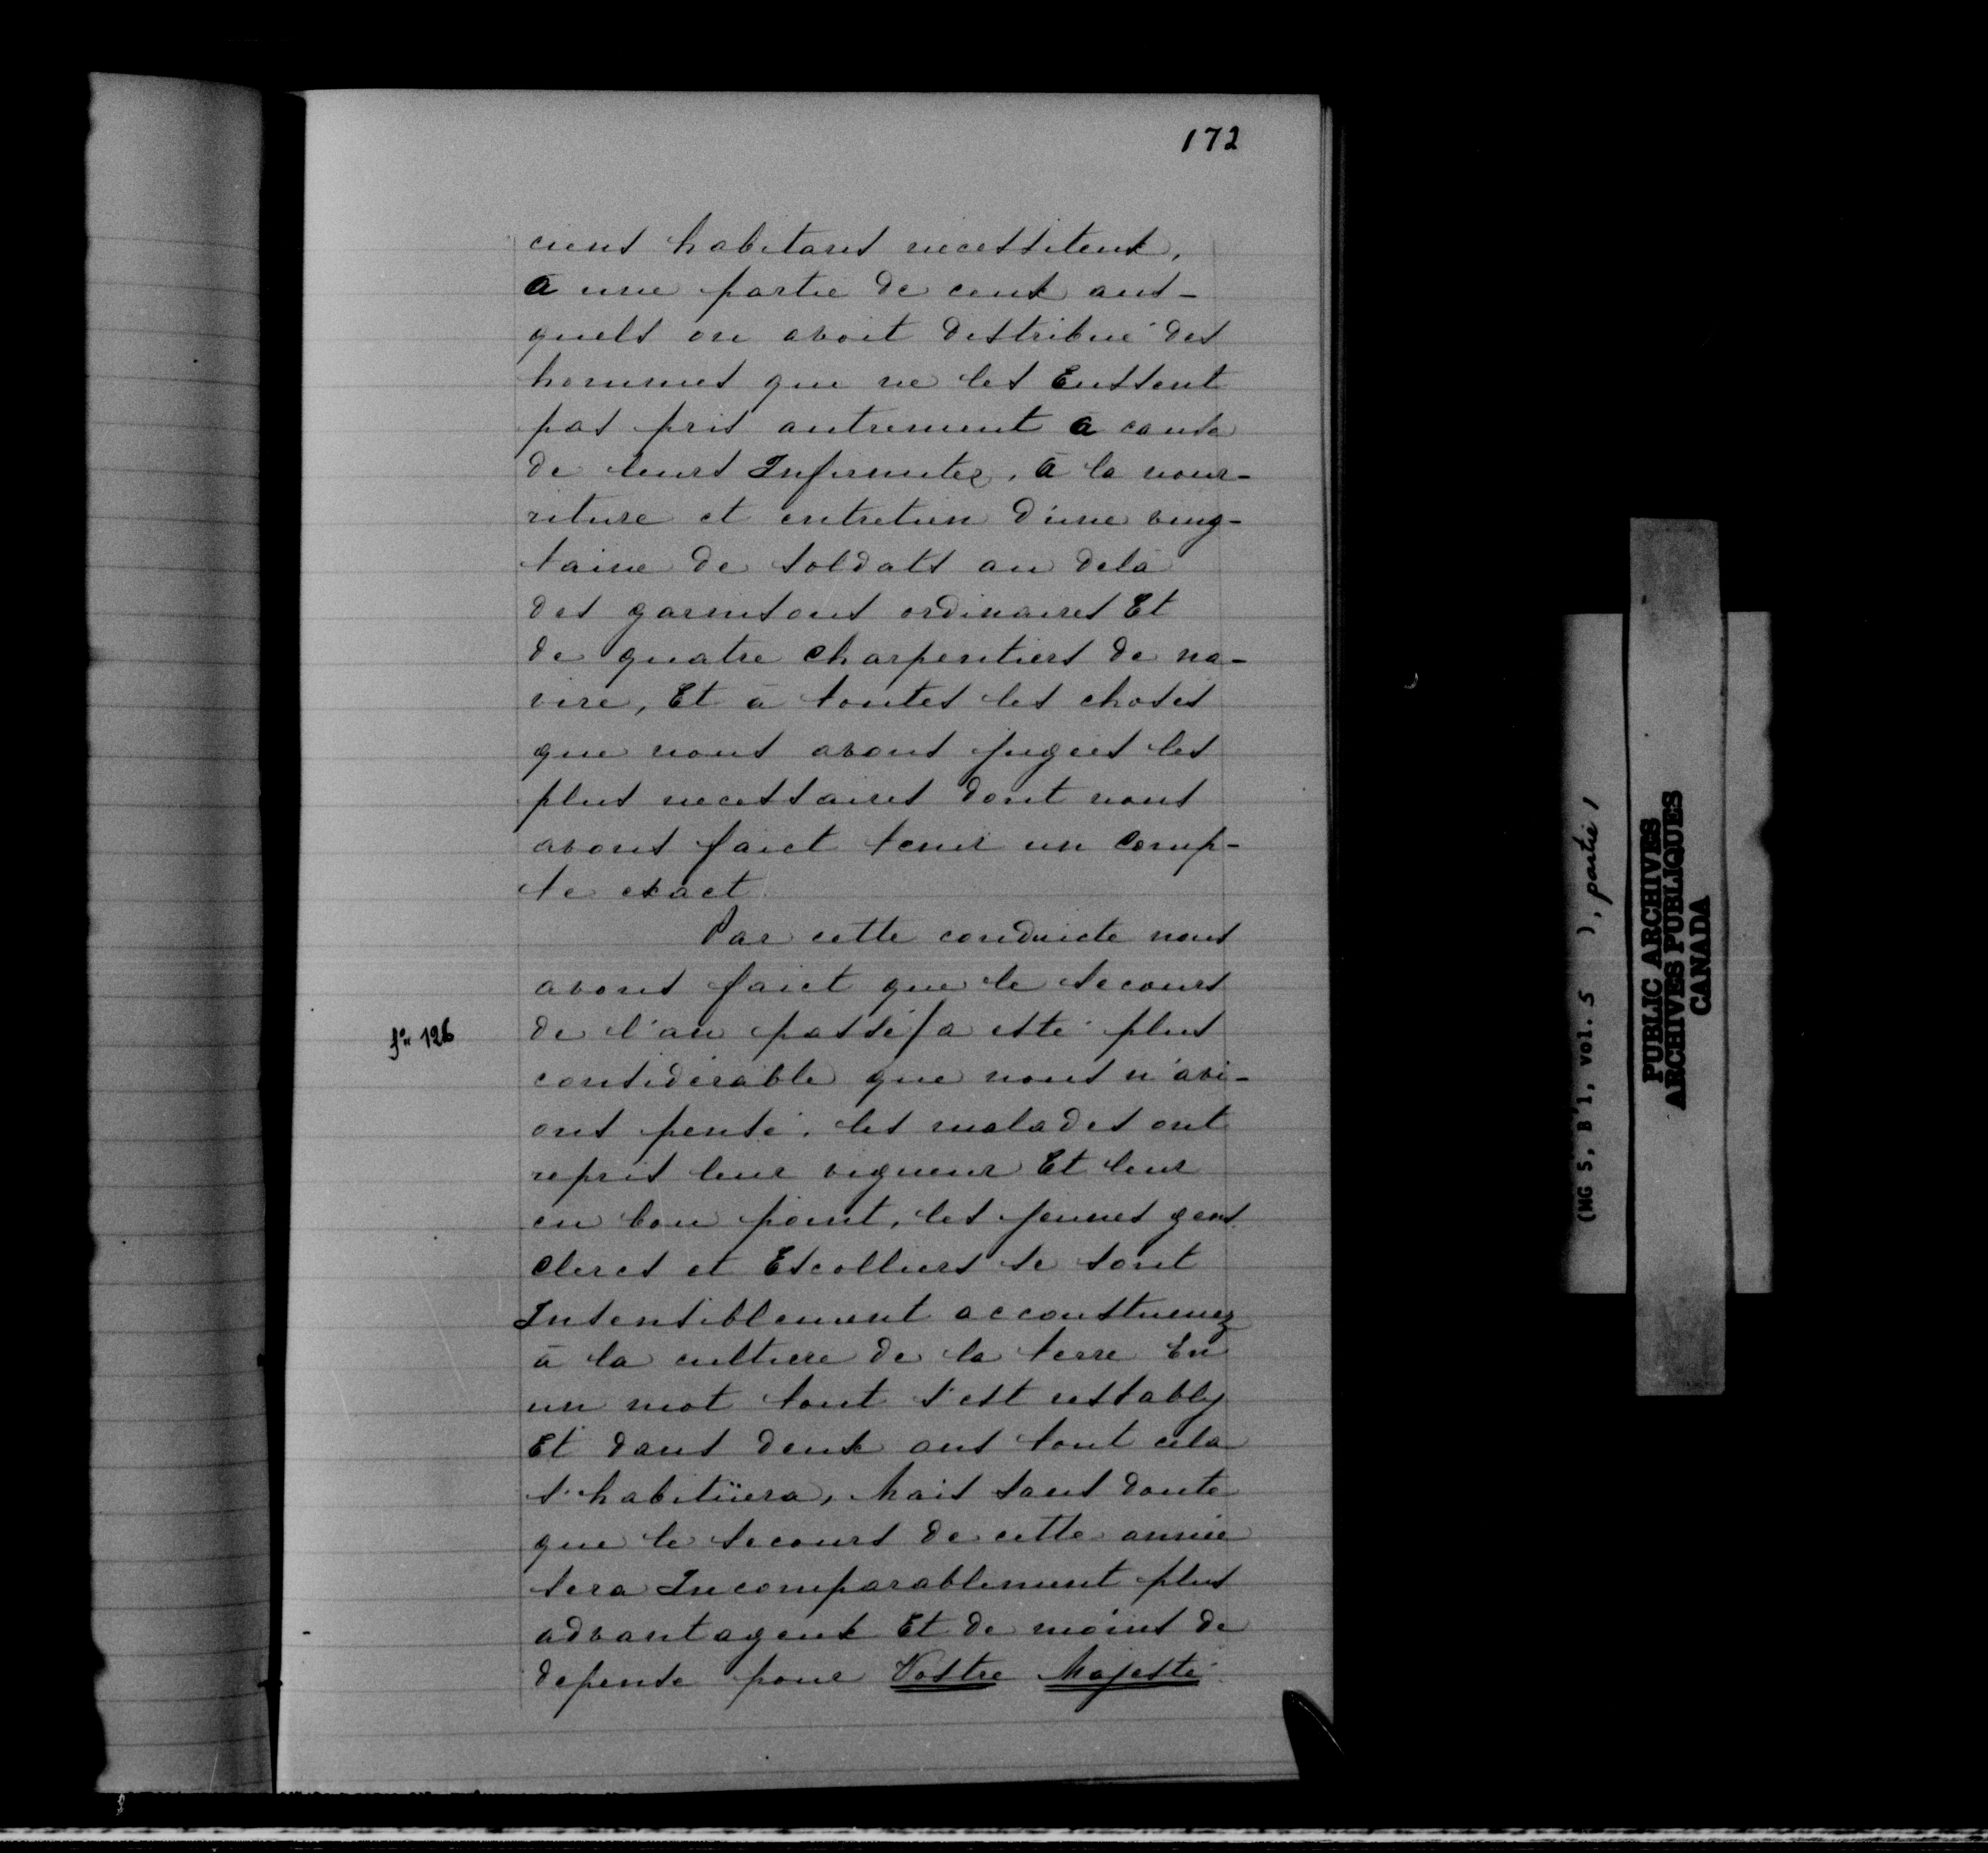 172
ciens habitans necessiteux,
a une partie de ceux aus-
quels on avoit distribué des
hommes qui ne les Eussent
pas pris autrement a cause
de leurs Infirmitez, à la nour-
riture et entretien d'une ving-
taine de soldats au delà
des garnisons ordinaires Et
de quatre charpentiers de na-
vire, Et à toutes les choses
que nous avons jugées les
plus necessaires dont nous
avons faict tenir un comp-
te exact.
Par cette conduicte nous
avons faict que le secours
fo 126
de l'an passé/a esté plus
considérable que nous n'avi-
ons pensé. les malades ont
repris leur vigueur Et leur
en bon point, les jeunes gens
Clercs et Escolliers se sont
Insensiblement accoustumez
à la culture de la terre En
un mot tout s'est establÿ
Et dans deux ans tout cela
s'habitüera, Mais sans doute
que le secours de cette année
sera Incomparablement plus
advantageux Et de moins de
depense pour Vostre Majesté
(MG 5, B 1, vol. 5 ), partie 1
PUBLIC ARCHIVES
ARCHIVES PUBLIQUES
CANADA